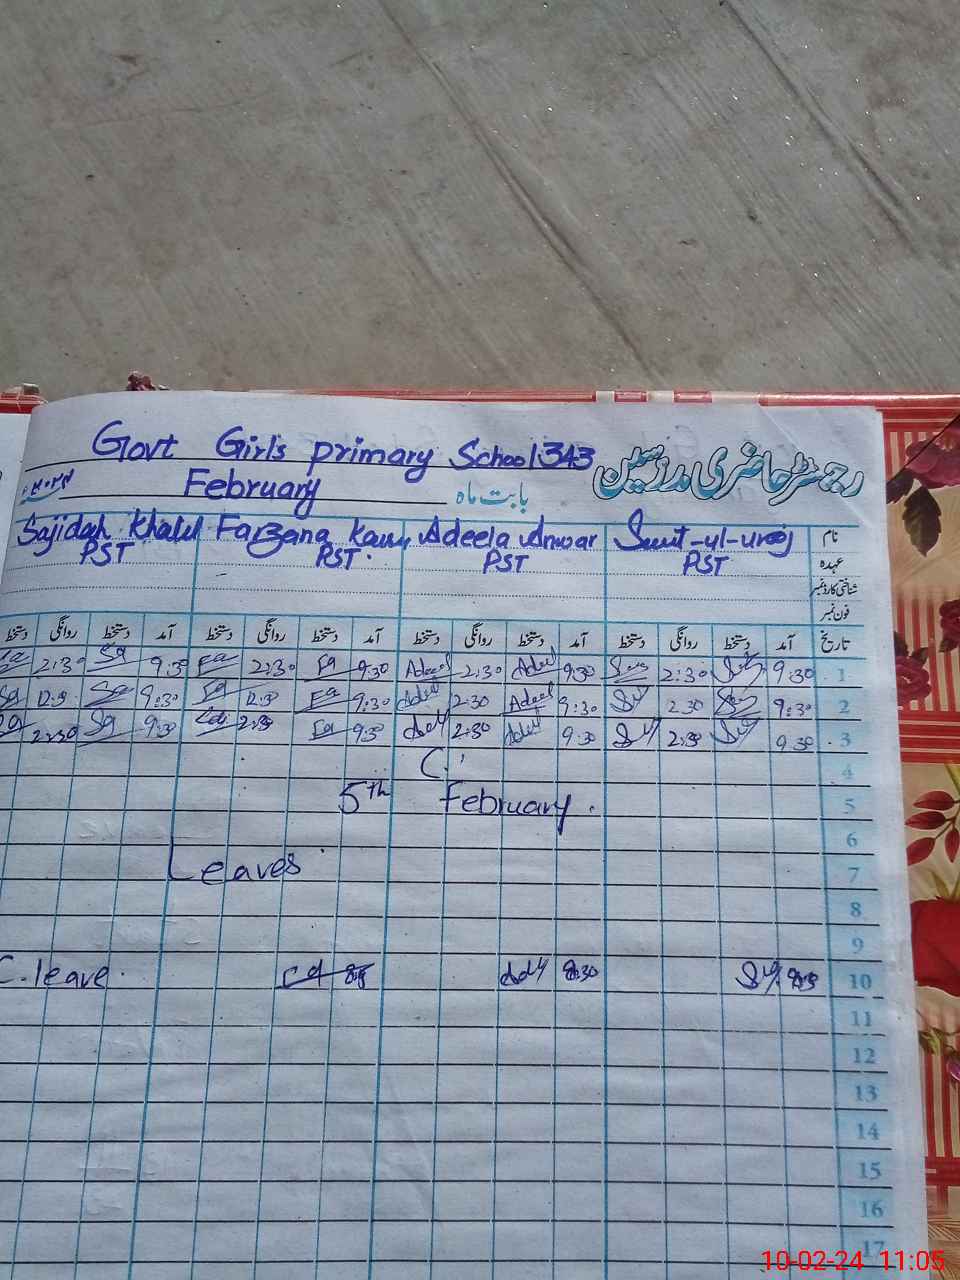 Govt Girls primary School 343
رجسٹر حاضری مدرسین
February
بابت ماہ
Sajidah Khalil Farzana Adeela Anwar
نام
PST PST PST PST
عہدہ
شناختی کارڈ نمبر
فون نمبر
دستخط روانگی دستخط آمد دستخط روانگی دستخط آمد دستخط روانگی دستخط آمد دستخط روانگی دستخط آمد تاریخ
2:30 Sa 9:30 Fa 2:30 Fa 9:30 Adeel 2:30 Adeel 9:30 2:30 9:30 1
Sa 12:30 Sa 9:30 Fa 12:30 Fa 9:30 Adeel 2:30 Adeel 9:30 2:30 9:30 2
2:30 Sa 9:30 2:30 Fa 9:30 2:30 9:30 2:30 9:30 3
4
5th February. 5
6
Leaves 7
8
9
C.leave. 8:30 10
11
12
13
14
15
16
17
10-02-24 11:05